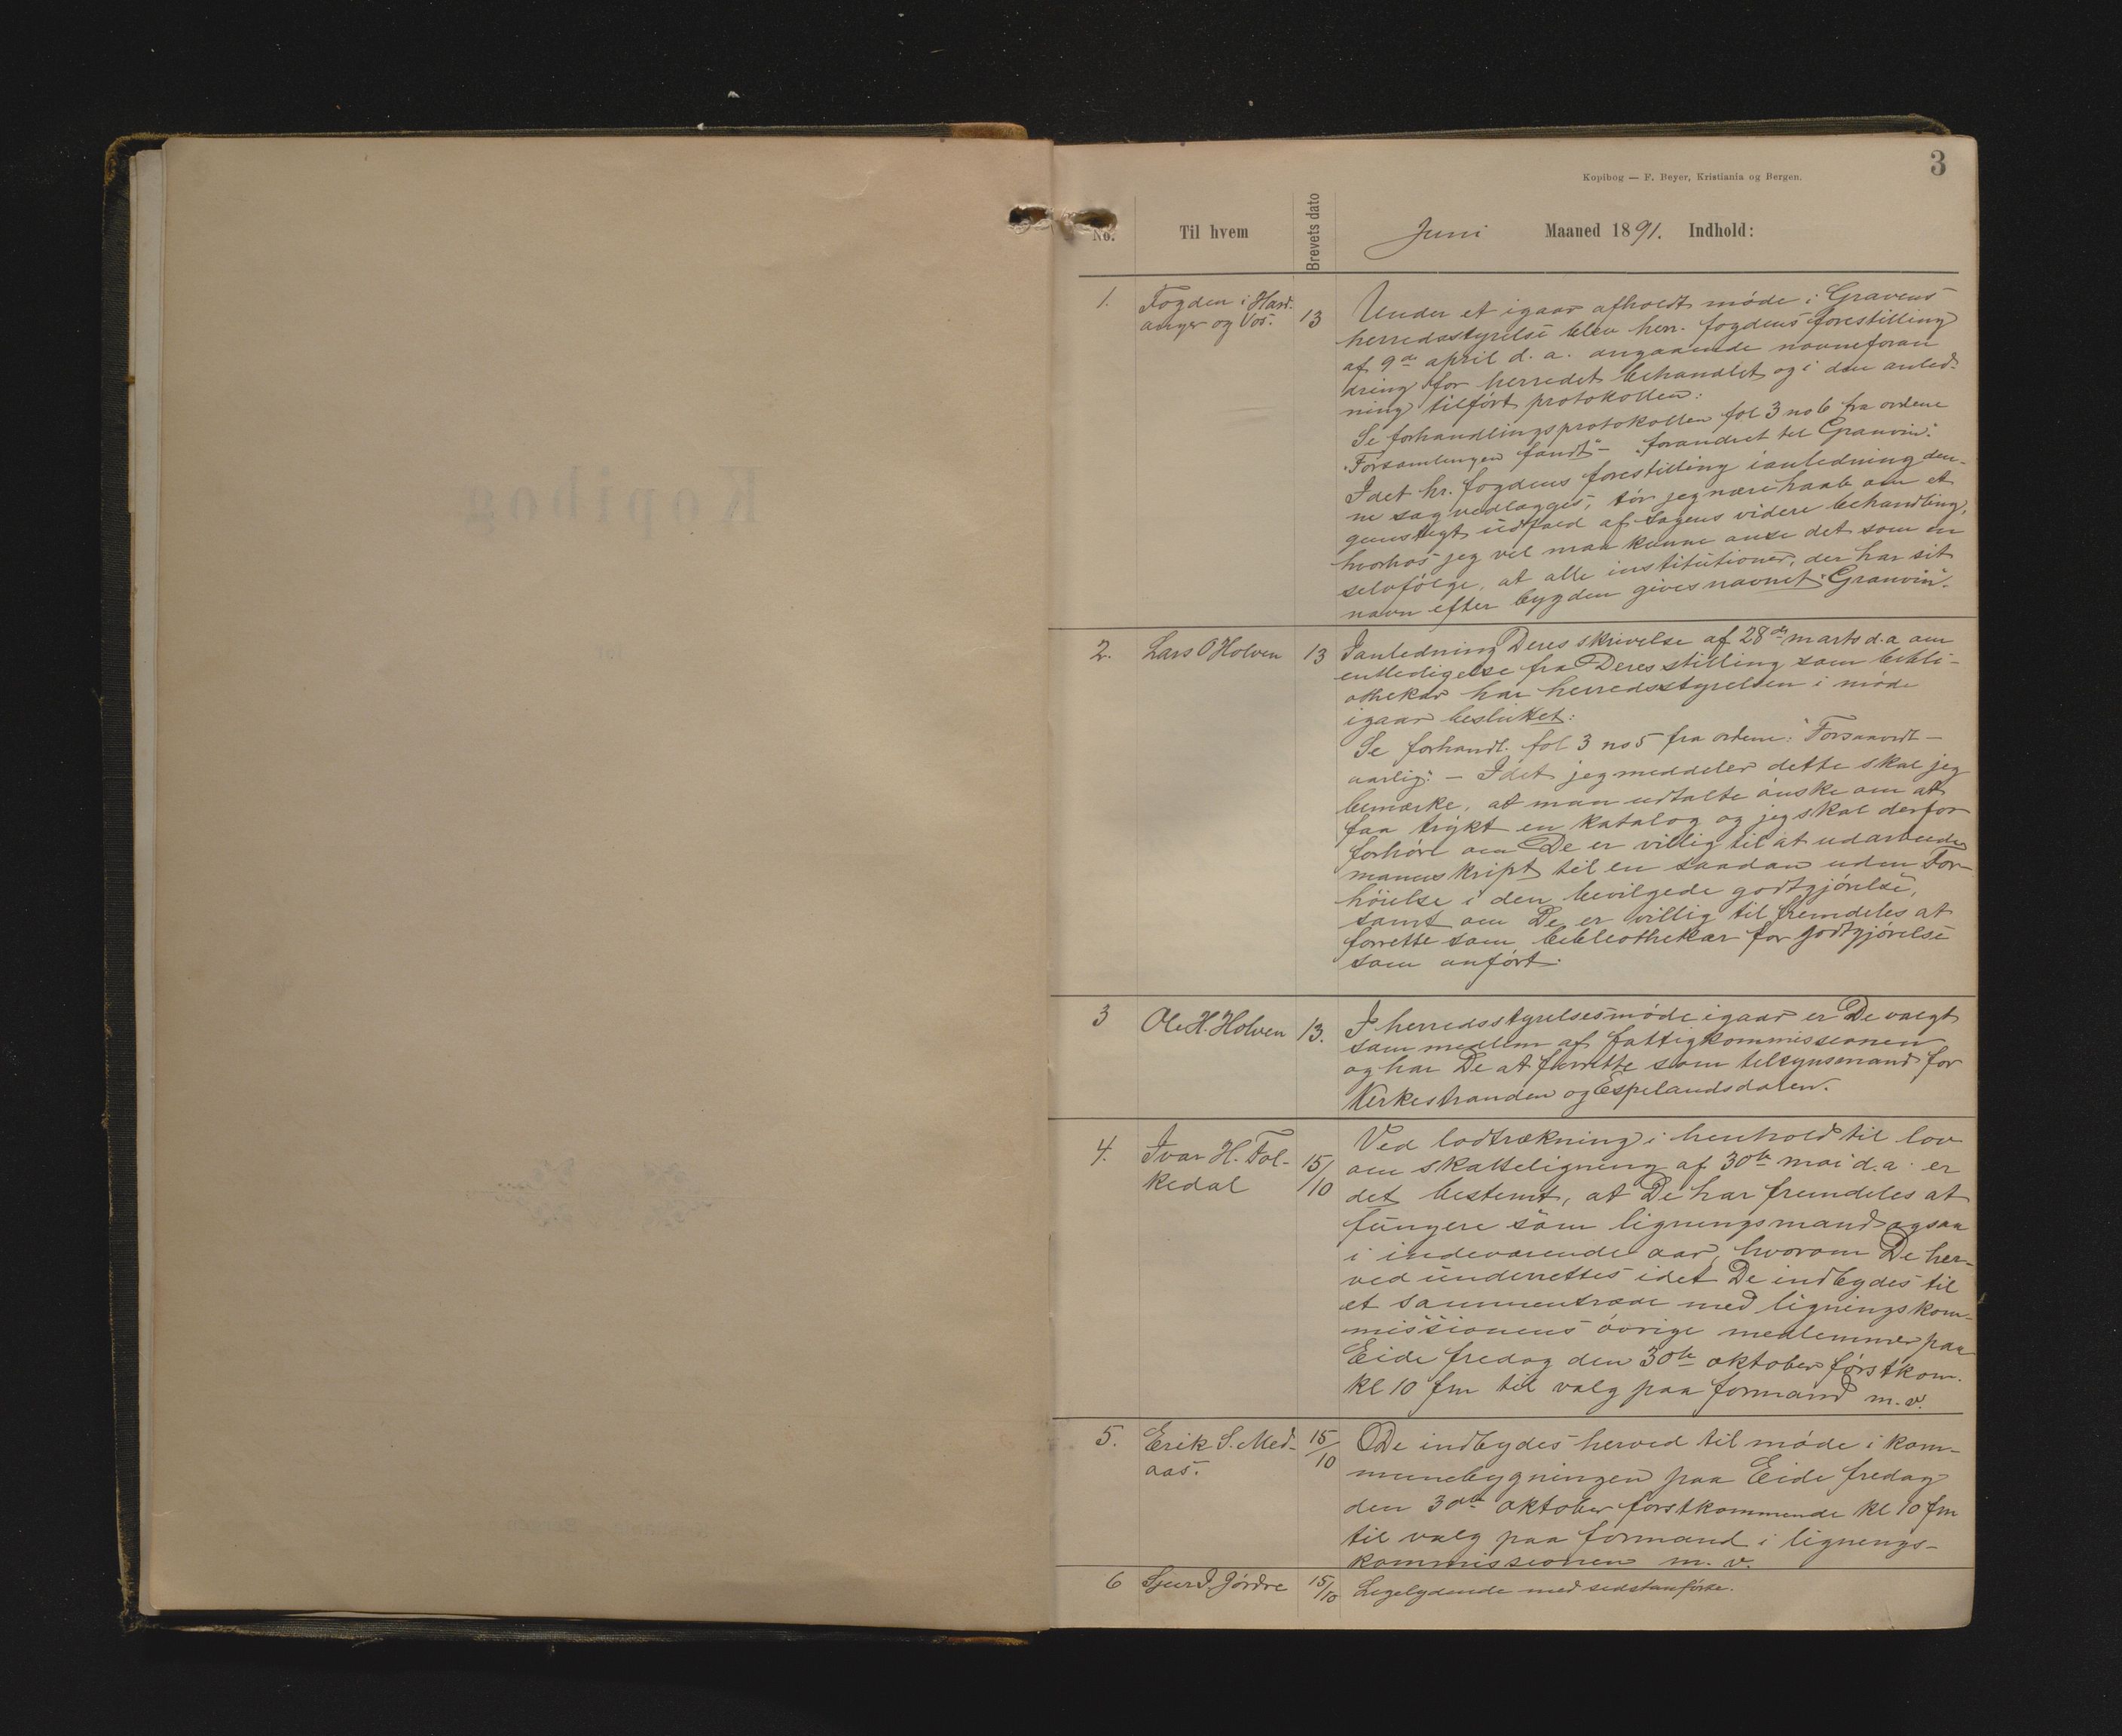 3
Kopibog — F. Beyer, Kristiania og Bergen.
No. Til hvem Brevets dato Juni Maaned 1891. Indhold:
1. Fogden i Hard-
anger og Vos. 13
Under et igaar afholdt møde i Gravens
herredsstyrelse blev herr. fogdens forestilling
af 9de april d. a. angaaende navneforan
dring for herredet behandlet og i den anled-
ning tilført protokollen:
Se forhandlingsprotokollen fol 3 no 6 fra ordene
"Forsamlingen fandt" – "forandret til Granvin".
Idet hr. fogdens forestilling ianledning den-
ne sag vedlægges, tør jeg nære haab om et
gunstigt udfald af sagens videre behandling,
hvorhos jeg vel maa kunne anse det som en
selvfølge, at alle institutioner, der har sit
navn efter bygden gives navnet "Granvin".
2. Lars O Holven 13
Ianledning Deres skrivelse af 28de marts d.a om
entledigelse fra Deres stilling som bibli-
othekar har herredsstyrelsen i møde
igaar besluttet:
Se forhandl. fol 3 no 5 fra ordene: "
aarlig". – Idet jeg meddeler dette skal jeg
bemærke, at man udtalte ønske om at
faa trykt en katalog og jeg skal derfor
forhøre om De er villig til at udarbeide
manuskript til en saadan uden For-
høielse i den bevilgede godtgjørelse,
samt om De er villig til fremdeles at
forrette som bibliothekar for godtgjørelse
som anført.
3 Ole H. Holven 13.
I herredsstyrelsesmøde igaar er De valgt
som medlem af fattigkommissionen
og har De at forrette som tilsynsmand for
Kirkestranden og Espelandsdalen.
4. Ivar H. Fol-
kedal 15/10
Ved lodtrækning i henhold til lov
om skatteligning af 30te mai d.a. er
det bestemt, at De har fremdeles at
fungere som ligningsmand ogsaa
i indeværende aar, hvorom De her-
ved underrettes idet De indbydes til
et sammentræde med ligningskom-
missionens øvrige medlemmer paa
Eide fredag den 30te oktober førstkom.
kl 10 fm til valg paa formand m.v.
5. Erik S. Med-
aas. 15/10
De indbydes herved til møde i kom-
munebygningen paa Eide fredag
den 30te oktober førstkommende kl 10 fm
til valg paa formand i lignings-
kommissionen m. v.
6 Sjur J. Jördre 15/10 Ligelydende med sidstanførte.
Kopibog